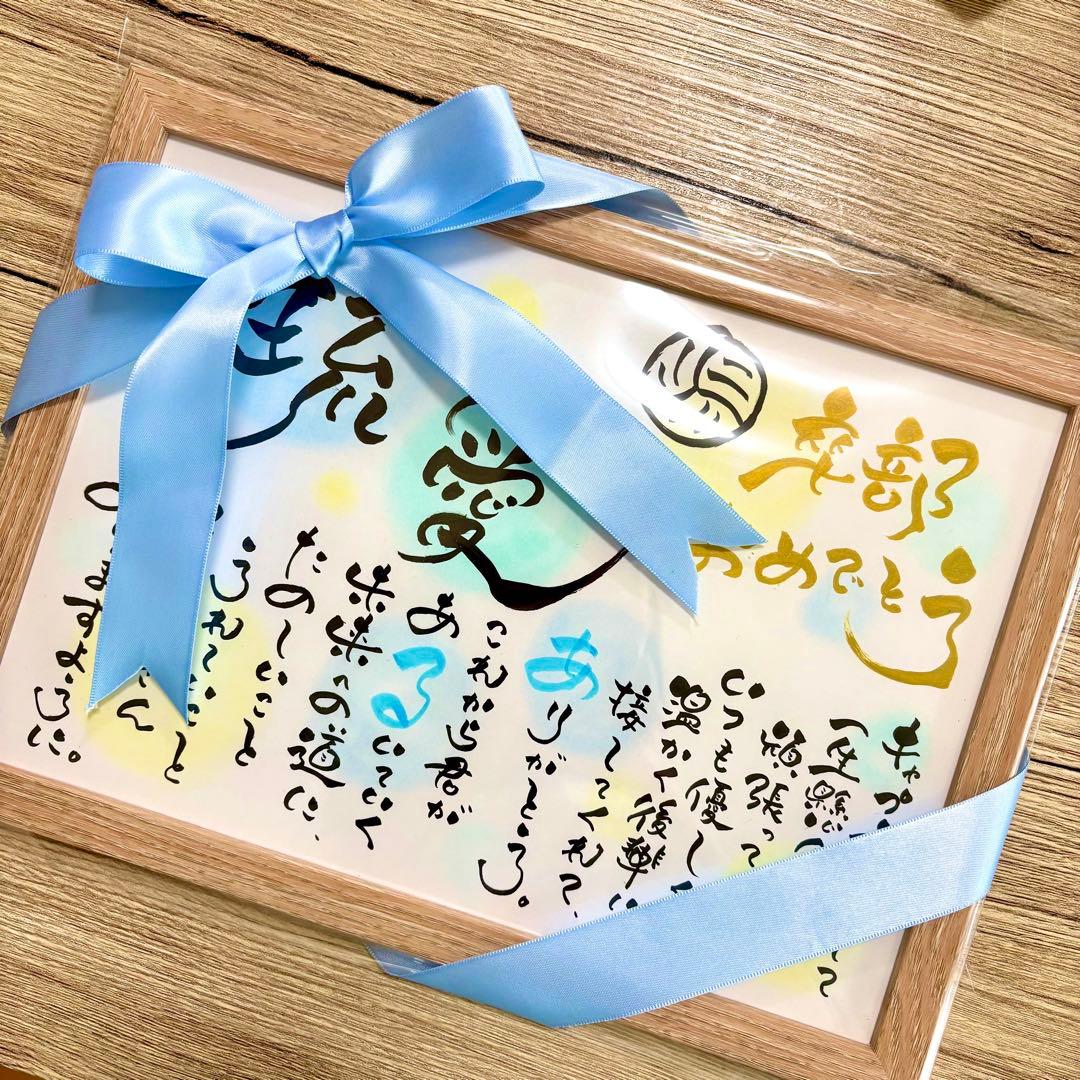 卒部
おめでとう
琉愛
キャプ
一生懸
頑張って
いつも優し
温かく後輩に
接してくれて、
ありがとう。
これから君が
あるいていく
未来への道に、
たのしいこと
うれしいこと
ん
ますように。